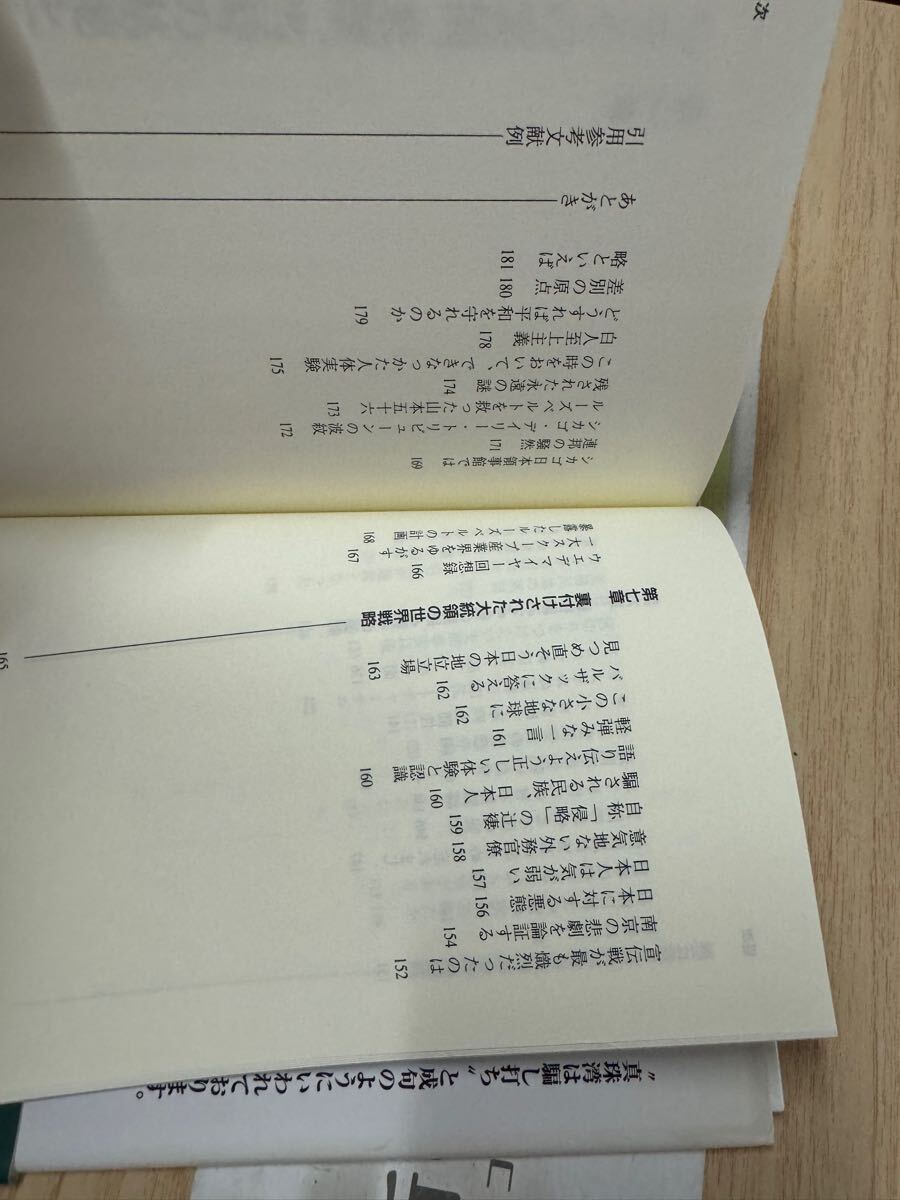 宣伝戦が最も熾烈だったのは 152
南京の悲劇を論証する 154
日本に対する悪態 156
日本人は気が弱い 157
意気地ない外務官僚 158
自称「侵略」の辻褄 159
騙される民族、日本人 160
語り伝えよう正しい体験と認識 160
軽弾みな一言 161
この小さな地球に 162
バルザックに答える 162
見つめ直そう日本の地位立場 163
第七章 裏付けされた大統領の世界戦略 165
ウエデマイヤー回想録 166
一大スクープ産業界をゆるがす 167
暴露したルーズベルトの計画 168
シカゴ日本領事館では 169
連邦の騒然 171
シカゴ・デイリー・トリビューンの波紋 172
ルーズベルトを救った山本五十六 173
残された永遠の謎 174
この時をおいて、できなかった人体実験 175
白人至上主義 178
どうすれば平和を守れるのか 179
差別の原点 180
略といえば 181
あとがき
引用参考文献例
次
〝真珠湾は騙し打ち〟と成句のようにいわれております。